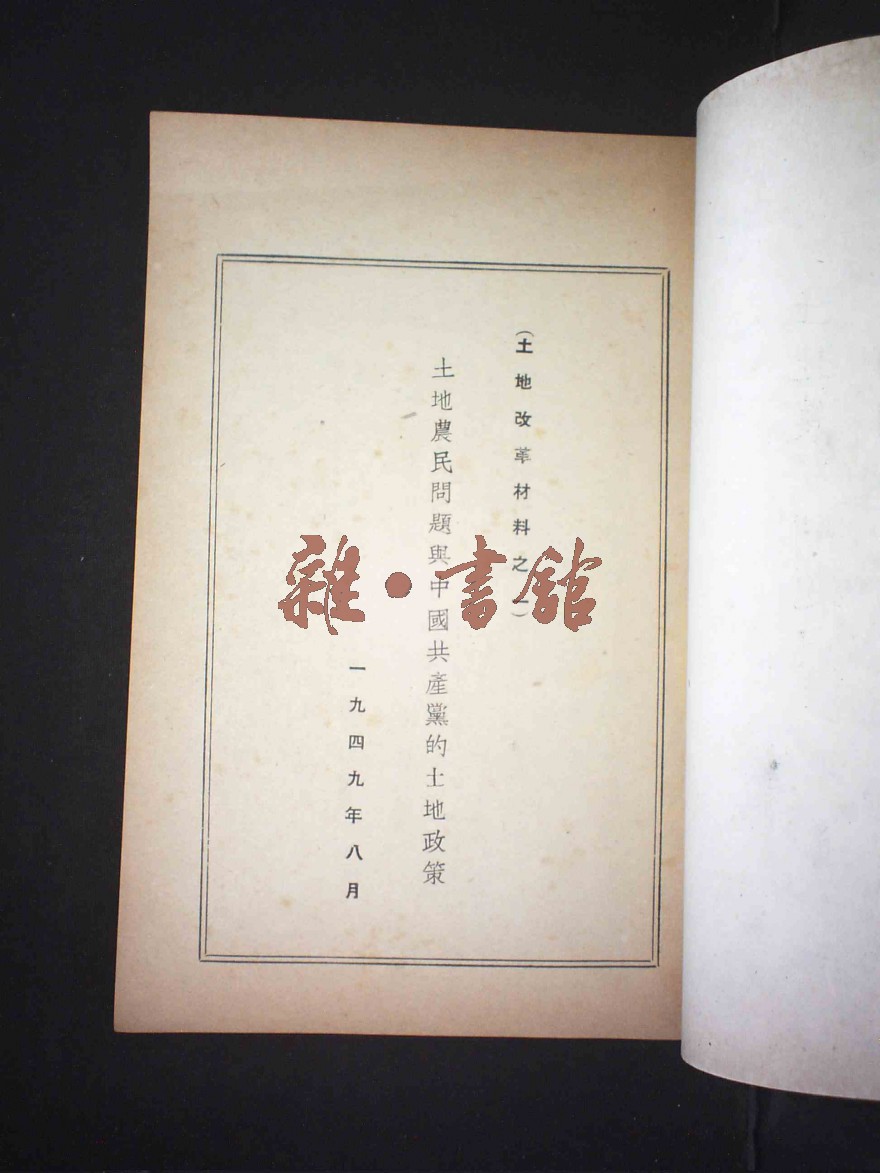 (土地改革材料之一)
土地農民問題與中國共產黨的土地政策
一九四九年八月
雜·書舘